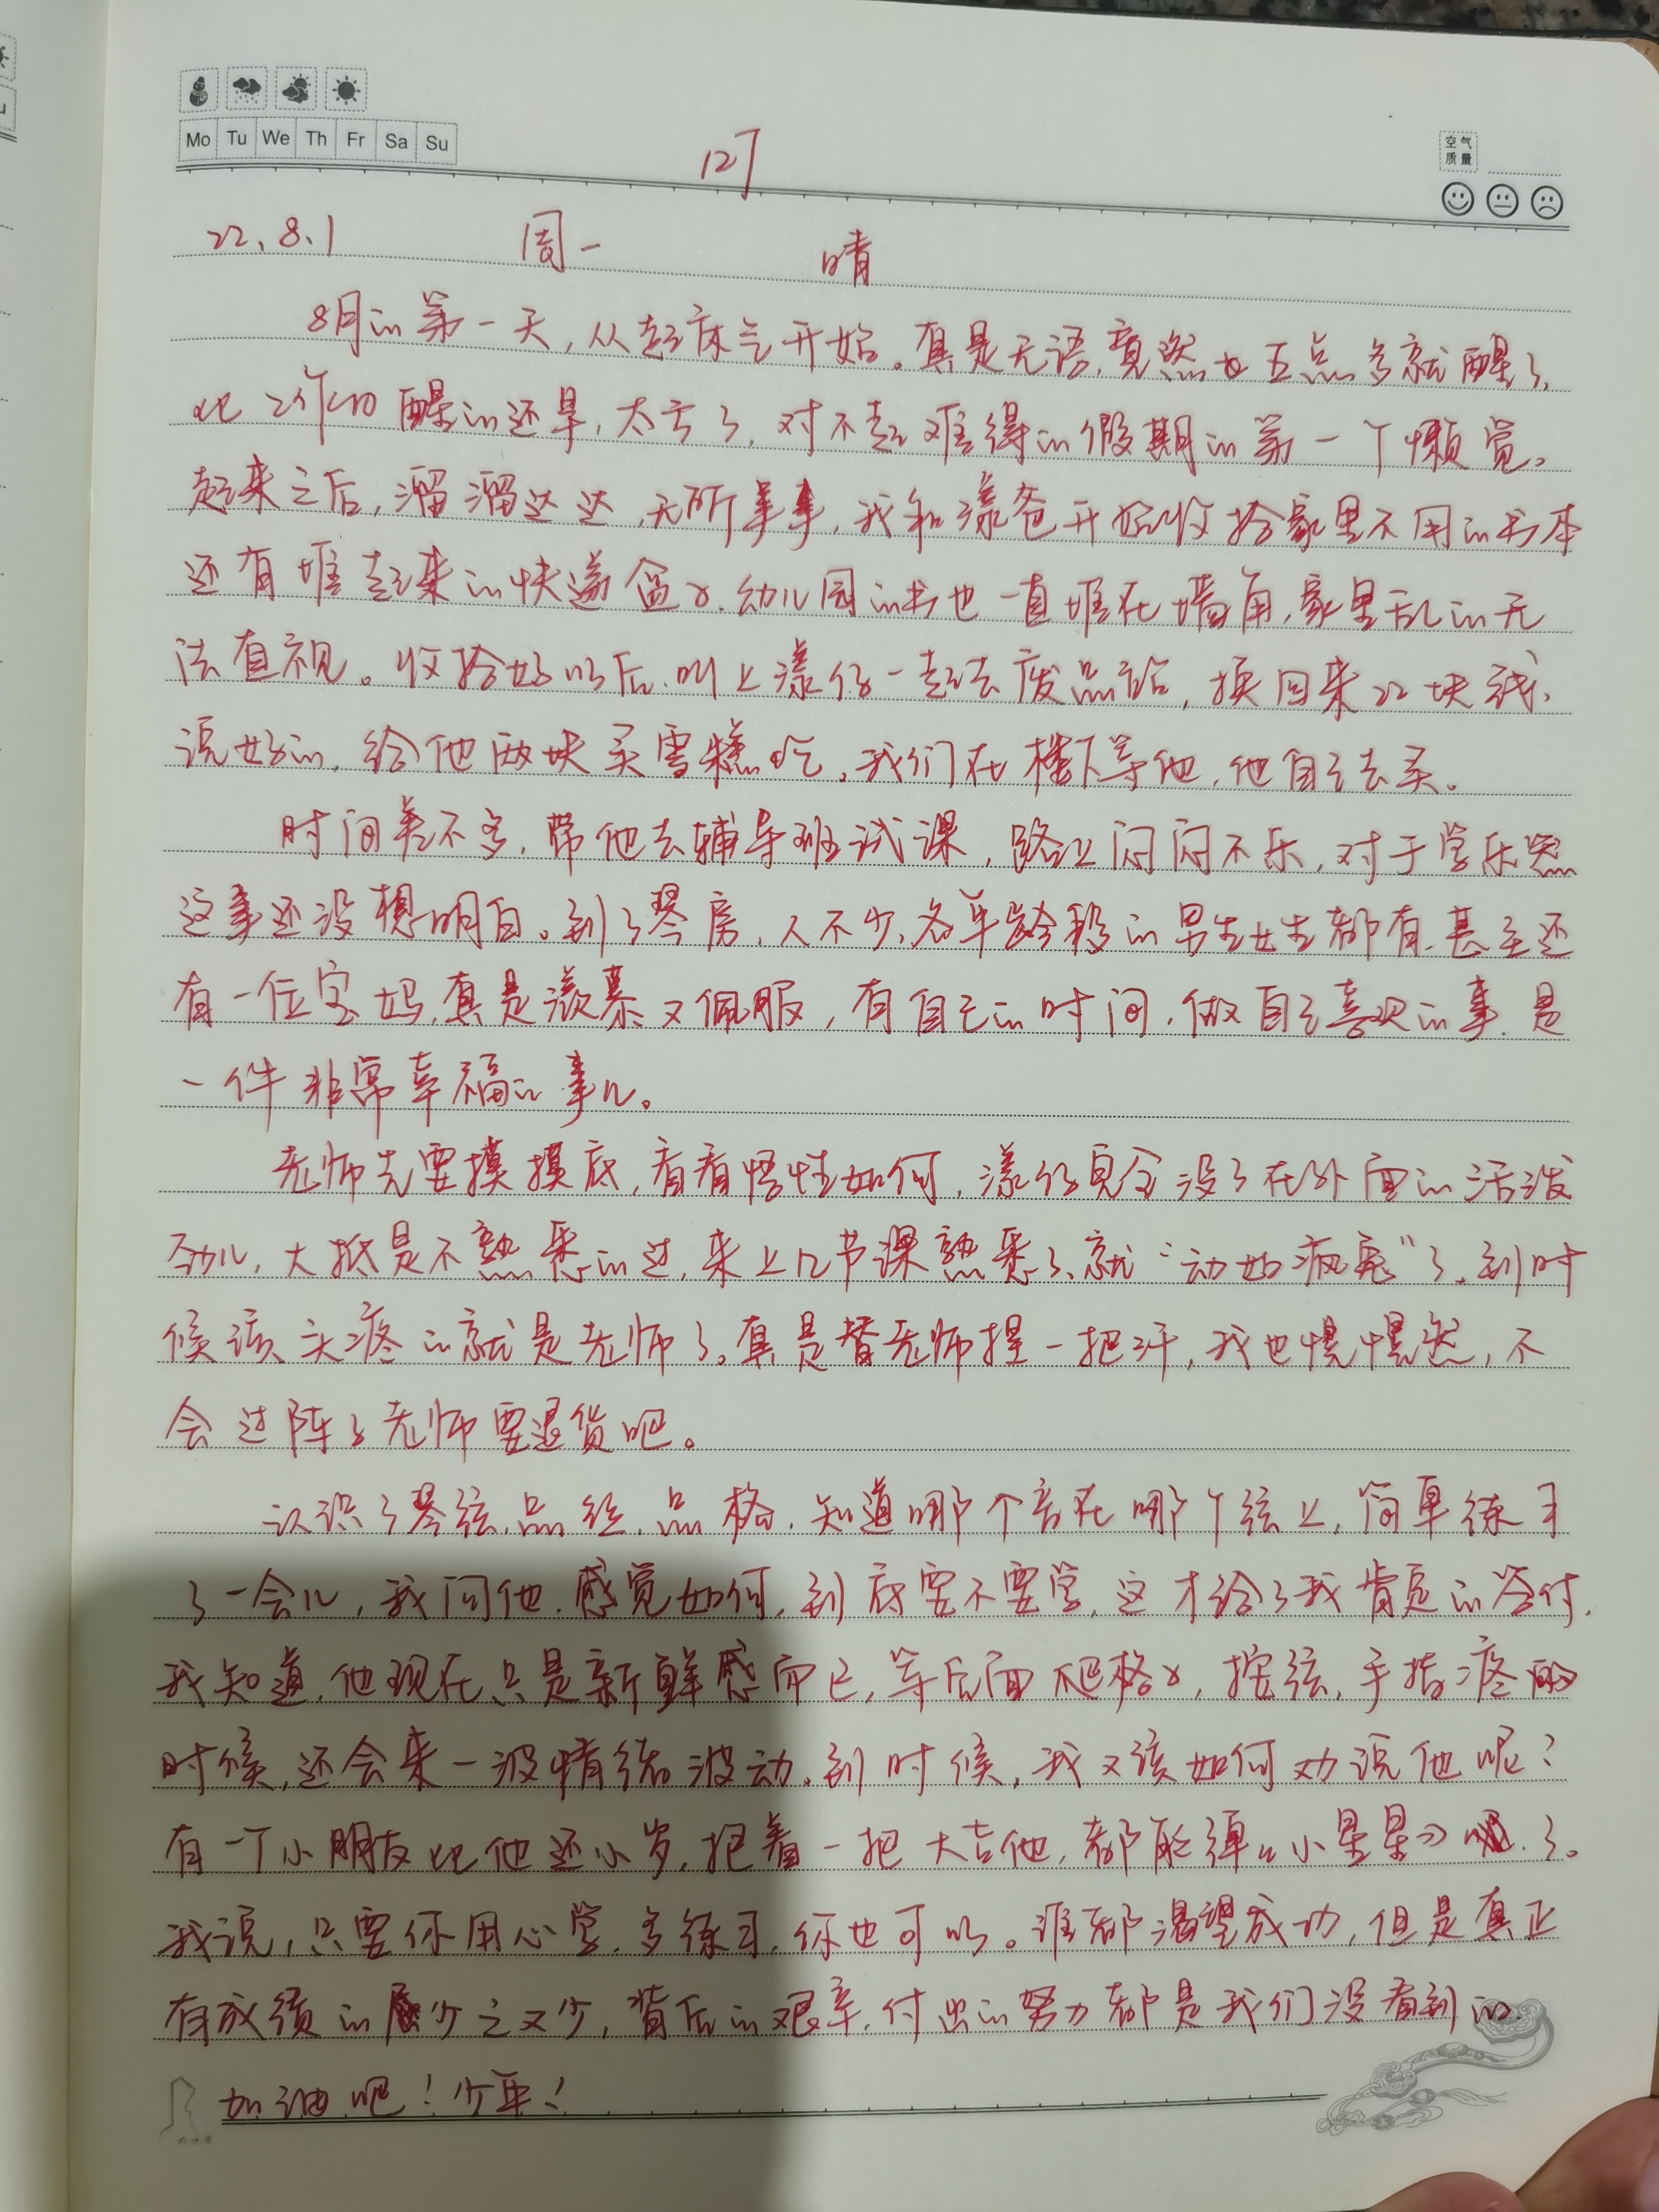 Mo Tu We Th Fr Sa Su
127
空气
质量
22.8.1 周一 晴
8月的第一天,从起床气开始。真是无语,竟然也五点多就醒了,
比工作日醒的还早,太亏了,对不起难得的假期的第一个懒觉。
起来之后,溜溜达达,无所事事,我和漾爸开始收拾家里不用的书本
还有堆起来的快递盒子,幼儿园的书也一直堆在墙角,家里乱的无
法直视。收拾好以后,叫上漾仔一起去废品站,换回来22块钱,
说好的,给他两块买雪糕吃,我们在楼下等他,他自己去买。
时间差不多,带他去辅导班试课,路上闷闷不乐,对于学乐器
这事还没想明白。到了琴房,人不少,各年龄段的男生女生都有,甚至还
有一位宝妈,真是羡慕又佩服,有自己的时间,做自己喜欢的事,是
一件非常幸福的事儿。
老师先要摸摸底,看看悟性如何,漾仔完全没了在外面的活泼
劲儿,大抵是不熟悉的过,来上几节课熟悉了,就“动如疯兔”了,到时
候该头疼的就是老师了。真是替老师捏一把汗,我也惶惶然,不
会过阵子老师要退货吧。
认识了琴弦,品丝,品格,知道哪个音在哪个弦上,简单练习
了一会儿,我问他,感觉如何,到底要不要学,这才给了我肯定的答付,
我知道,他现在只是新鲜感而已,等后面爬格子,按弦,手指疼的
时候,还会来一波情绪波动,到时候,我又该如何劝说他呢?
有一个小朋友比他还小岁,抱着一把大吉他,都能弹《小星星》了。
我说,只要你用心学,多练习,你也可以。谁都渴望成功,但是真正
有成绩的少之又少,背后的艰辛,付出的努力都是我们没看到的,
加油吧!少年!